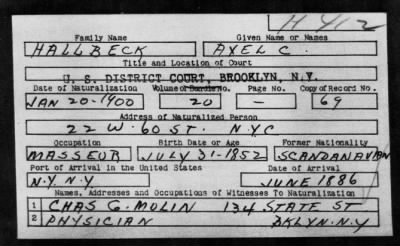 H 412
Family Name Given Name or Names
HALLBECK AXEL C.
Title and Location of Court
U. S. DISTRICT COURT, BROOKLYN, N.Y.
Date of Naturalization Volume or Bundle No. Page No. Copy of Record No.
JAN 20-1900 20 — 69
Address of Naturalized Person
22 W. 60 ST. NYC
Occupation Birth Date or Age Former Nationality
MASSEUR JULY 31-1852 SCANDANAVIAN
Port of Arrival in the United States Date of Arrival
N.Y. N.Y JUNE 1886
Names, Addresses and Occupations of Witnesses To Naturalization
1 CHAS G. MOLIN 134 STATE ST
2 PHYSICIAN BKLYN. N.Y